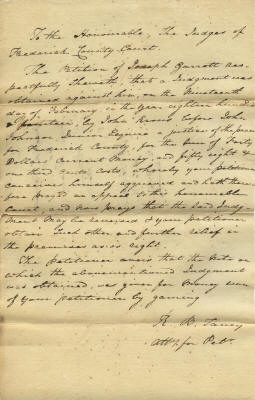 To the Honourable, The Judges of
Frederick County Court.
The Petition of Joseph Garrott res
pectfully Sheweth, that a Judgment was
obtained against him, on the Nineteenth
day of February in the year eighteen hundred
& fourteen, by John before John
Johnson Junior Esquire a justice of the peace
for Frederick County, for the sum of Forty
Dollars Current Money, and fifty eight &
one third cents, costs, whereby your petitioner
conceives himself aggrieved and hath there
fore prayed an appeal to this honorable
Court, and now prays that the said Judg-
ment may be reversed & your petitioner
obtain such other and further relief in
the premises as is right.
The Petitioner avers that the Note on
which the abovementioned Judgment
was obtained, was given for Money won
of your petitioner by gaming
R. B. Taney
Atty for Petr.